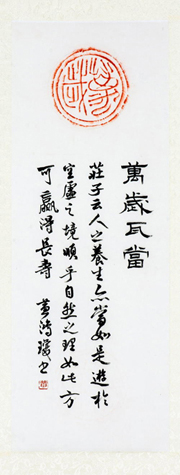 萬歲
萬歲瓦當
莊子云人之養生亦當如是遊於
空虛之境順乎自然之理如此方
可贏得長壽 黃鴻瓊書